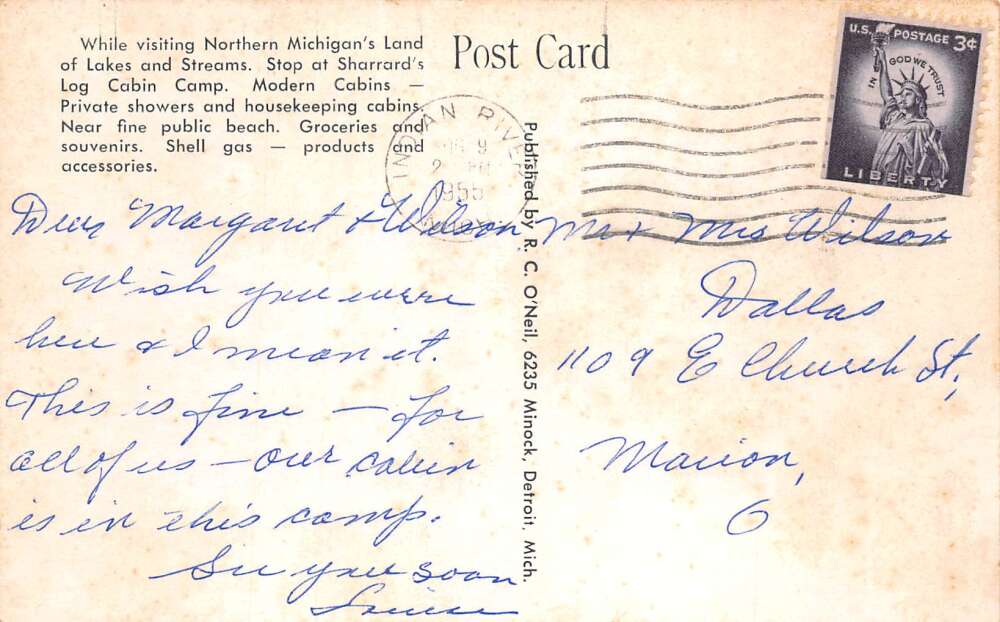 While visiting Northern Michigan's Land
of Lakes and Streams. Stop at Sharrard's
Log Cabin Camp. Modern Cabins —
Private showers and housekeeping cabins.
Near fine public beach. Groceries and
souvenirs. Shell gas — products and
accessories.
Post Card
U.S. POSTAGE 3¢
IN GOD WE TRUST
LIBERTY
INDIAN RIVER
9
2 PM
1955
Dear Margaret & Wilson,
Wish you were
here & I mean it.
This is fine — for
all of us — our cabin
is in this camp.
See you soon
Louise
Published by R. C. O'Neil, 6235 Minock, Detroit, Mich.
Mr + Mrs Wilson
Dallas
1109 E Church St,
Marion,
O